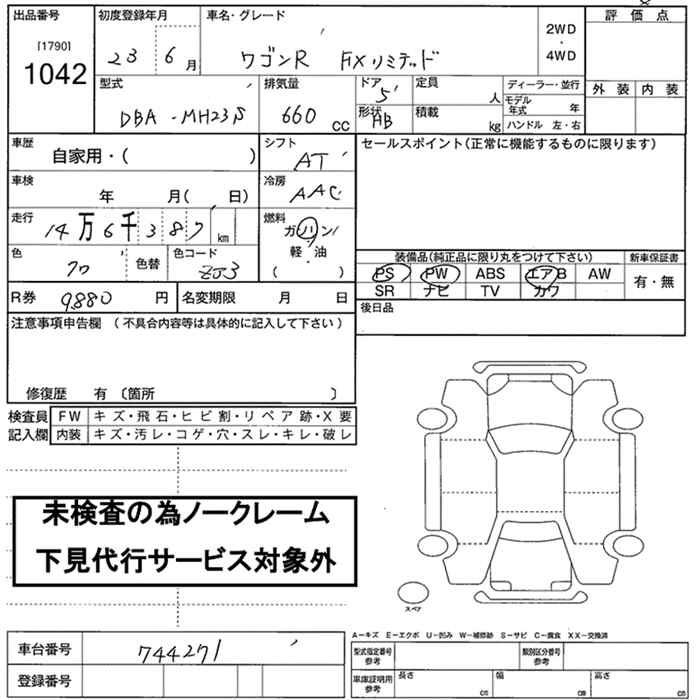 出品番号 初度登録年月 車名・グレード 評価点
[1790]
1042
23 6月 ワゴンR FXリミテッド
2WD
・
4WD
外装 内装
型式 排気量 ドア 定員 ディーラー・並行
5 人 モデル年式 年
DBA-MH23S 660cc 形状 AB 積載 kg ハンドル 左・右
車歴 シフト セールスポイント(正常に機能するものに限ります)
自家用・( ) AT
車検 冷房
年 月( 日) AAC
走行 燃料
14万6千387km ガソリン
軽・油
( )
色 色替 色コード 装備品(純正品に限り丸をつけて下さい) 新車保証書
ZJ3 PS PW ABS エアB AW 有・無
SR ナビ TV カワ
R券 9880円 名変期限 月 日 後日品
注意事項申告欄(不具合内容等は具体的に記入して下さい)
修復歴 有〔箇所 〕
検査員 FW キズ・飛石・ヒビ割・リペア跡・X要
記入欄 内装 キズ・汚レ・コゲ・穴・スレ・キレ・破レ
未検査の為ノークレーム
下見代行サービス対象外
スペア
A−キズ E−エクボ U−凹み W−補修跡 S−サビ C−腐食 XX−交換済
車台番号 744271 型式指定番号 参考 類別区分番号 参考
登録番号 車庫証明用 参考 長さ cm 幅 cm 高さ cm